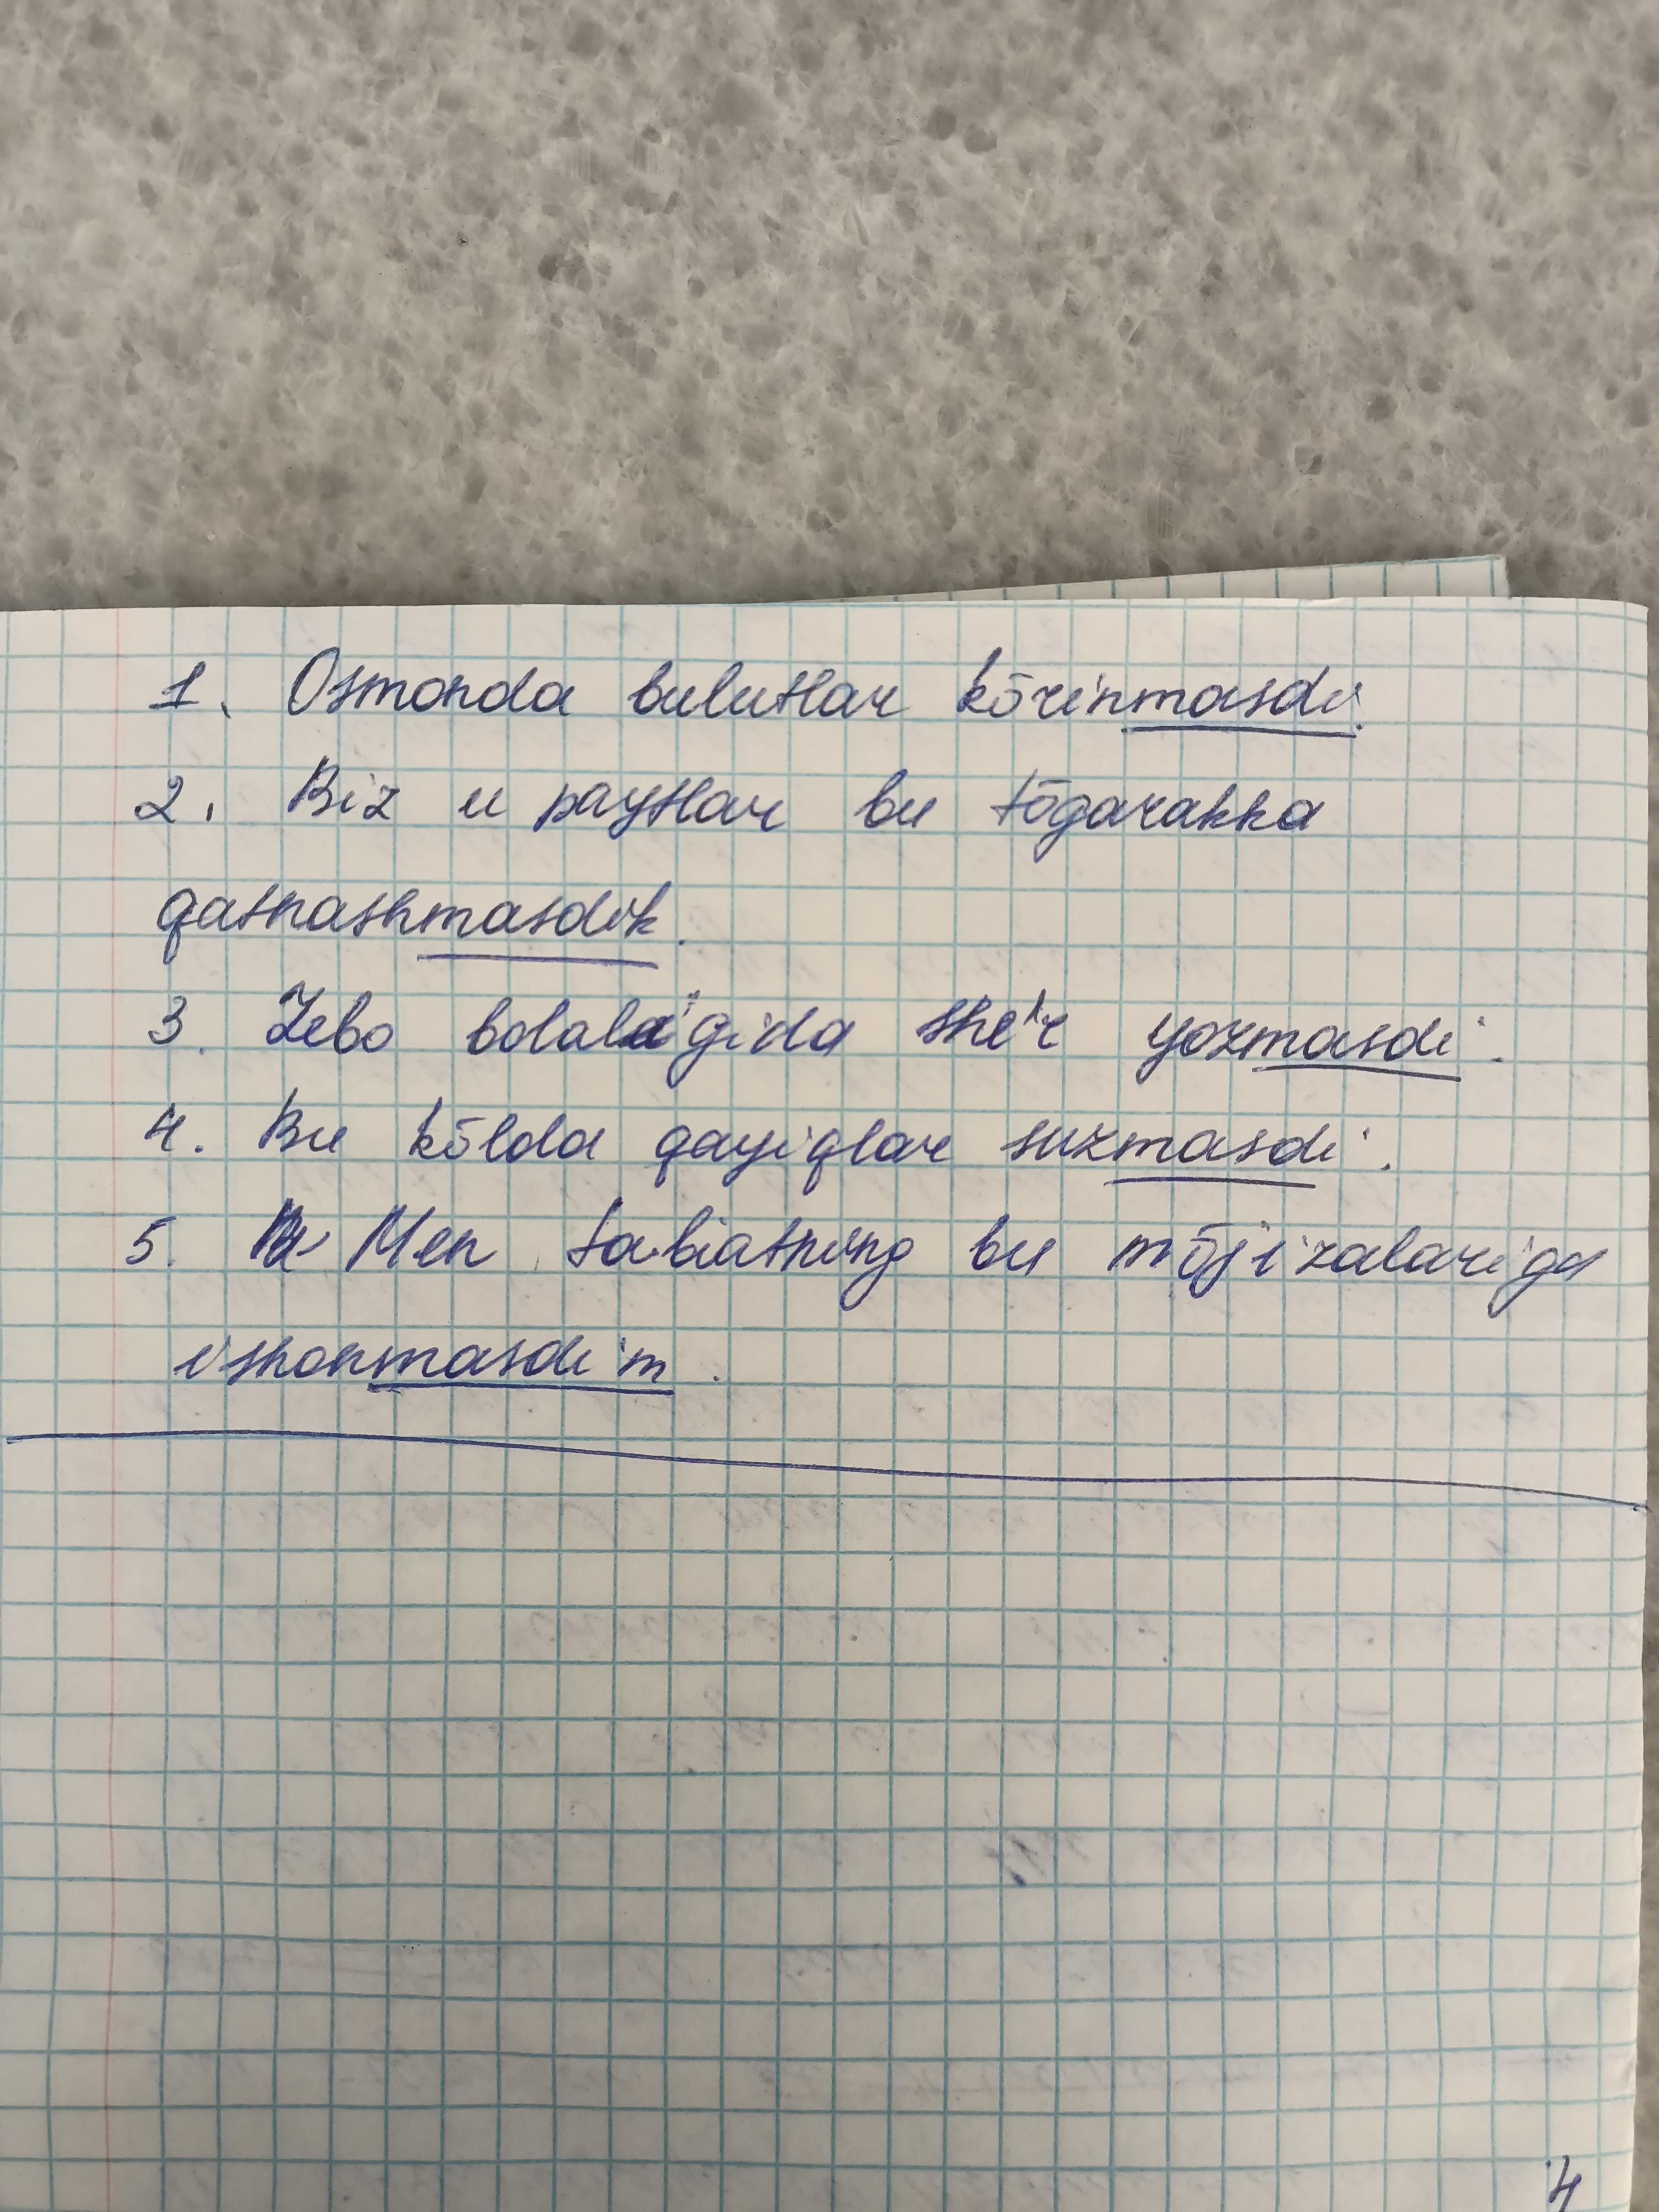 1. Osmonda bulutlar kōrinmasdi.
2. Biz u paytlar bu tōgarakka
qatnashmasdik.
3. Zebo bolaligida she'r yozmasdi.
4. Bu kōlda qayiqlar suzmasdi.
5. Men tabiatning bu mōjizalariga
ishonmasdim.
4